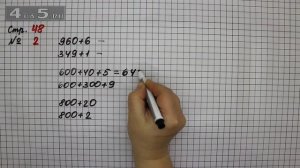 Стр. 48
№ 2
960+6 -
349+1 -
600+40+5=64
600+300+9
800+20
800+2